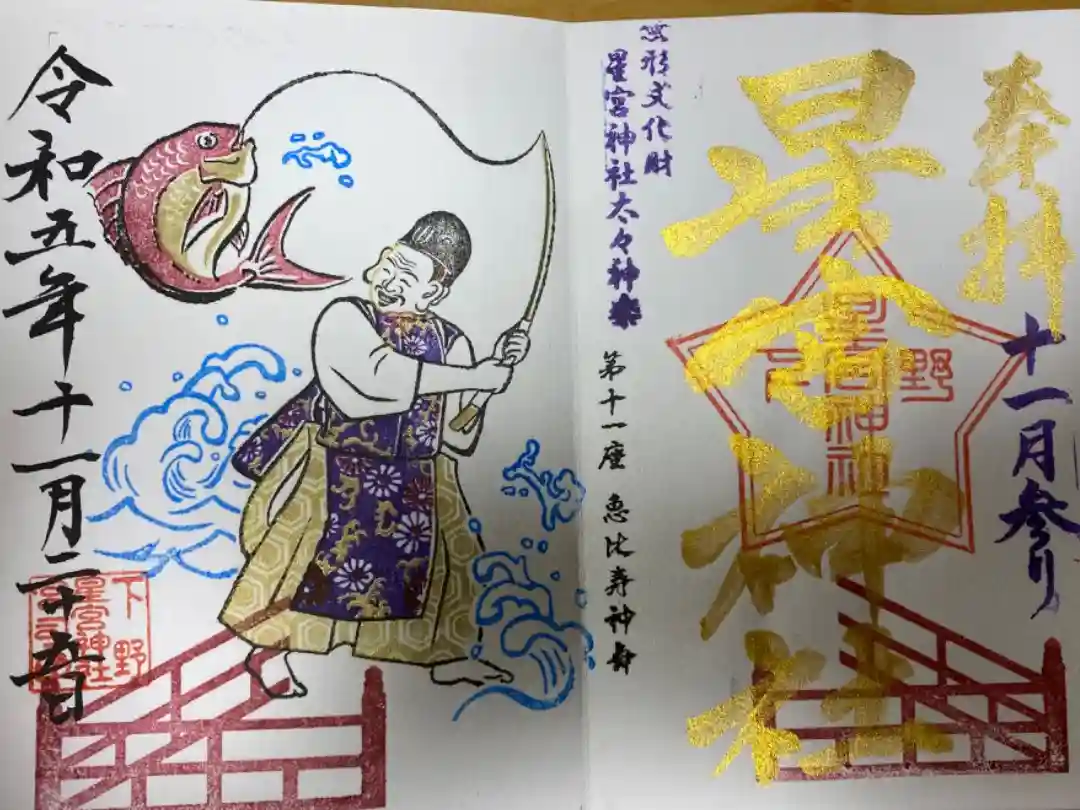 奉拝
十一月参り
星宮神社
下野
星宮神社
無形文化財
星宮神社太々神楽
第十一座 恵比寿神舞
令和五年十一月二十五日
下野
星宮神社